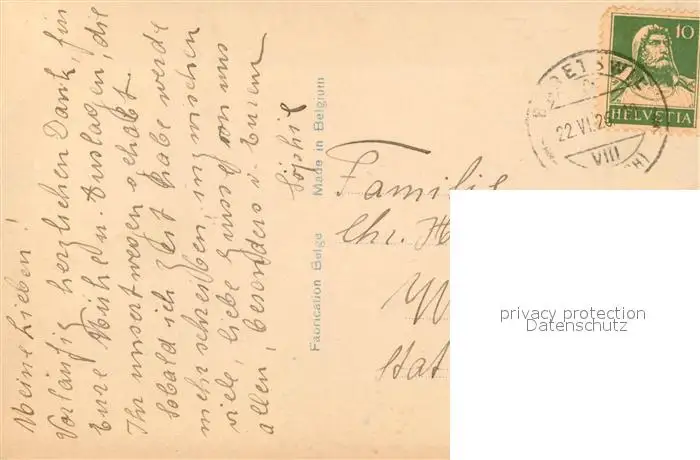 Meine Lieben!
Vorläufig herzlichen Dank, für
Eure Mühe u. Auslagen, die
Ihr unsertwegen gehabt.
Sobald ich Zeit habe werde
mehr schreiben, inzwischen
viele, liebe Grüsse von uns
allen, besonders v. Eurem
Fabrication Belge Made in Belgium
Familie
Chr. H
W
Stat
10
HELVETIA
22.VI.26
VIII
privacy protection
Datenschutz